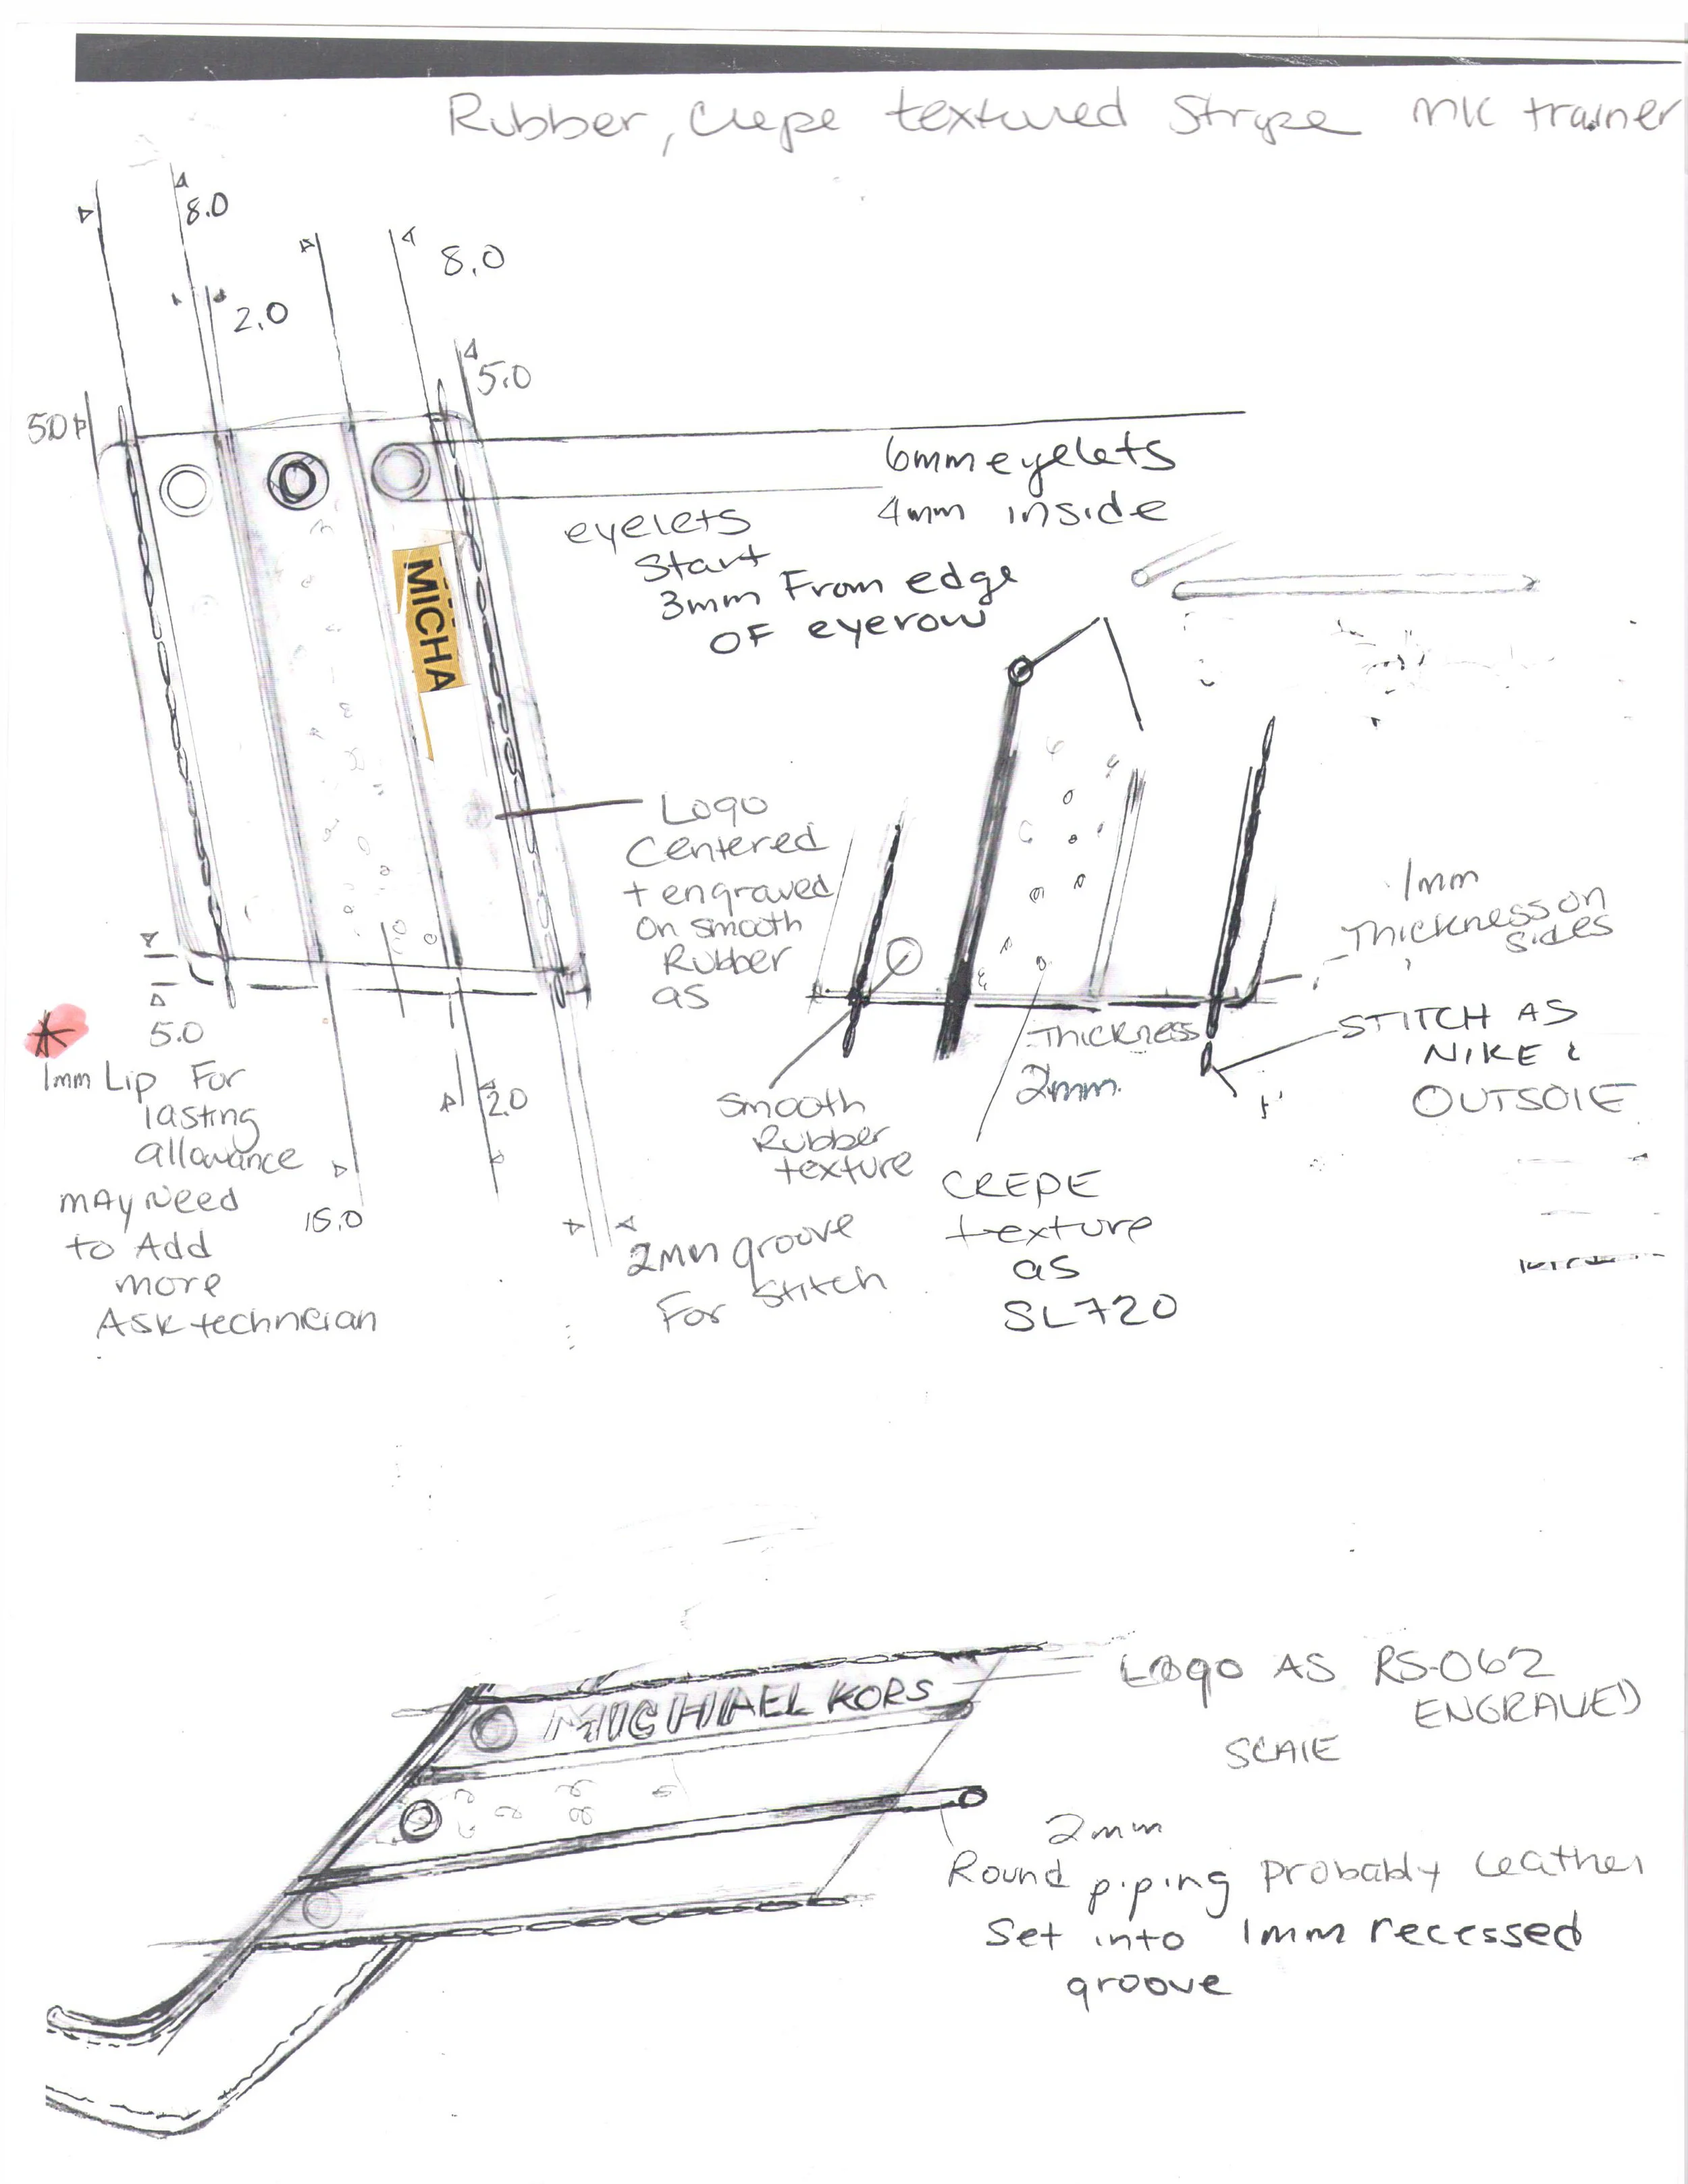 Rubber, Crepe textured Stripe MK trainer
8.0
8.0
2.0
5.0
50
6mm eyelets
4mm inside
eyelets
Start
3mm From edge
OF eyerow
MICHA
Logo
Centered
+ engraved
On smooth
Rubber
as
1mm
Thickness on
sides
5.0
1mm Lip For
lasting
allowance
MAy Need
to Add
more
Ask technician
2.0
15.0
2mm groove
For Stitch
Smooth
Rubber
texture
Thickness
2mm.
CREPE
texture
as
SL720
STITCH AS
NIKE &
OUTSOlE
MICHAEL KORS
Logo AS RS-062
ENGRAVED
SCAlE
2mm
Round piping Probably Leather
Set into 1mm recessed
groove